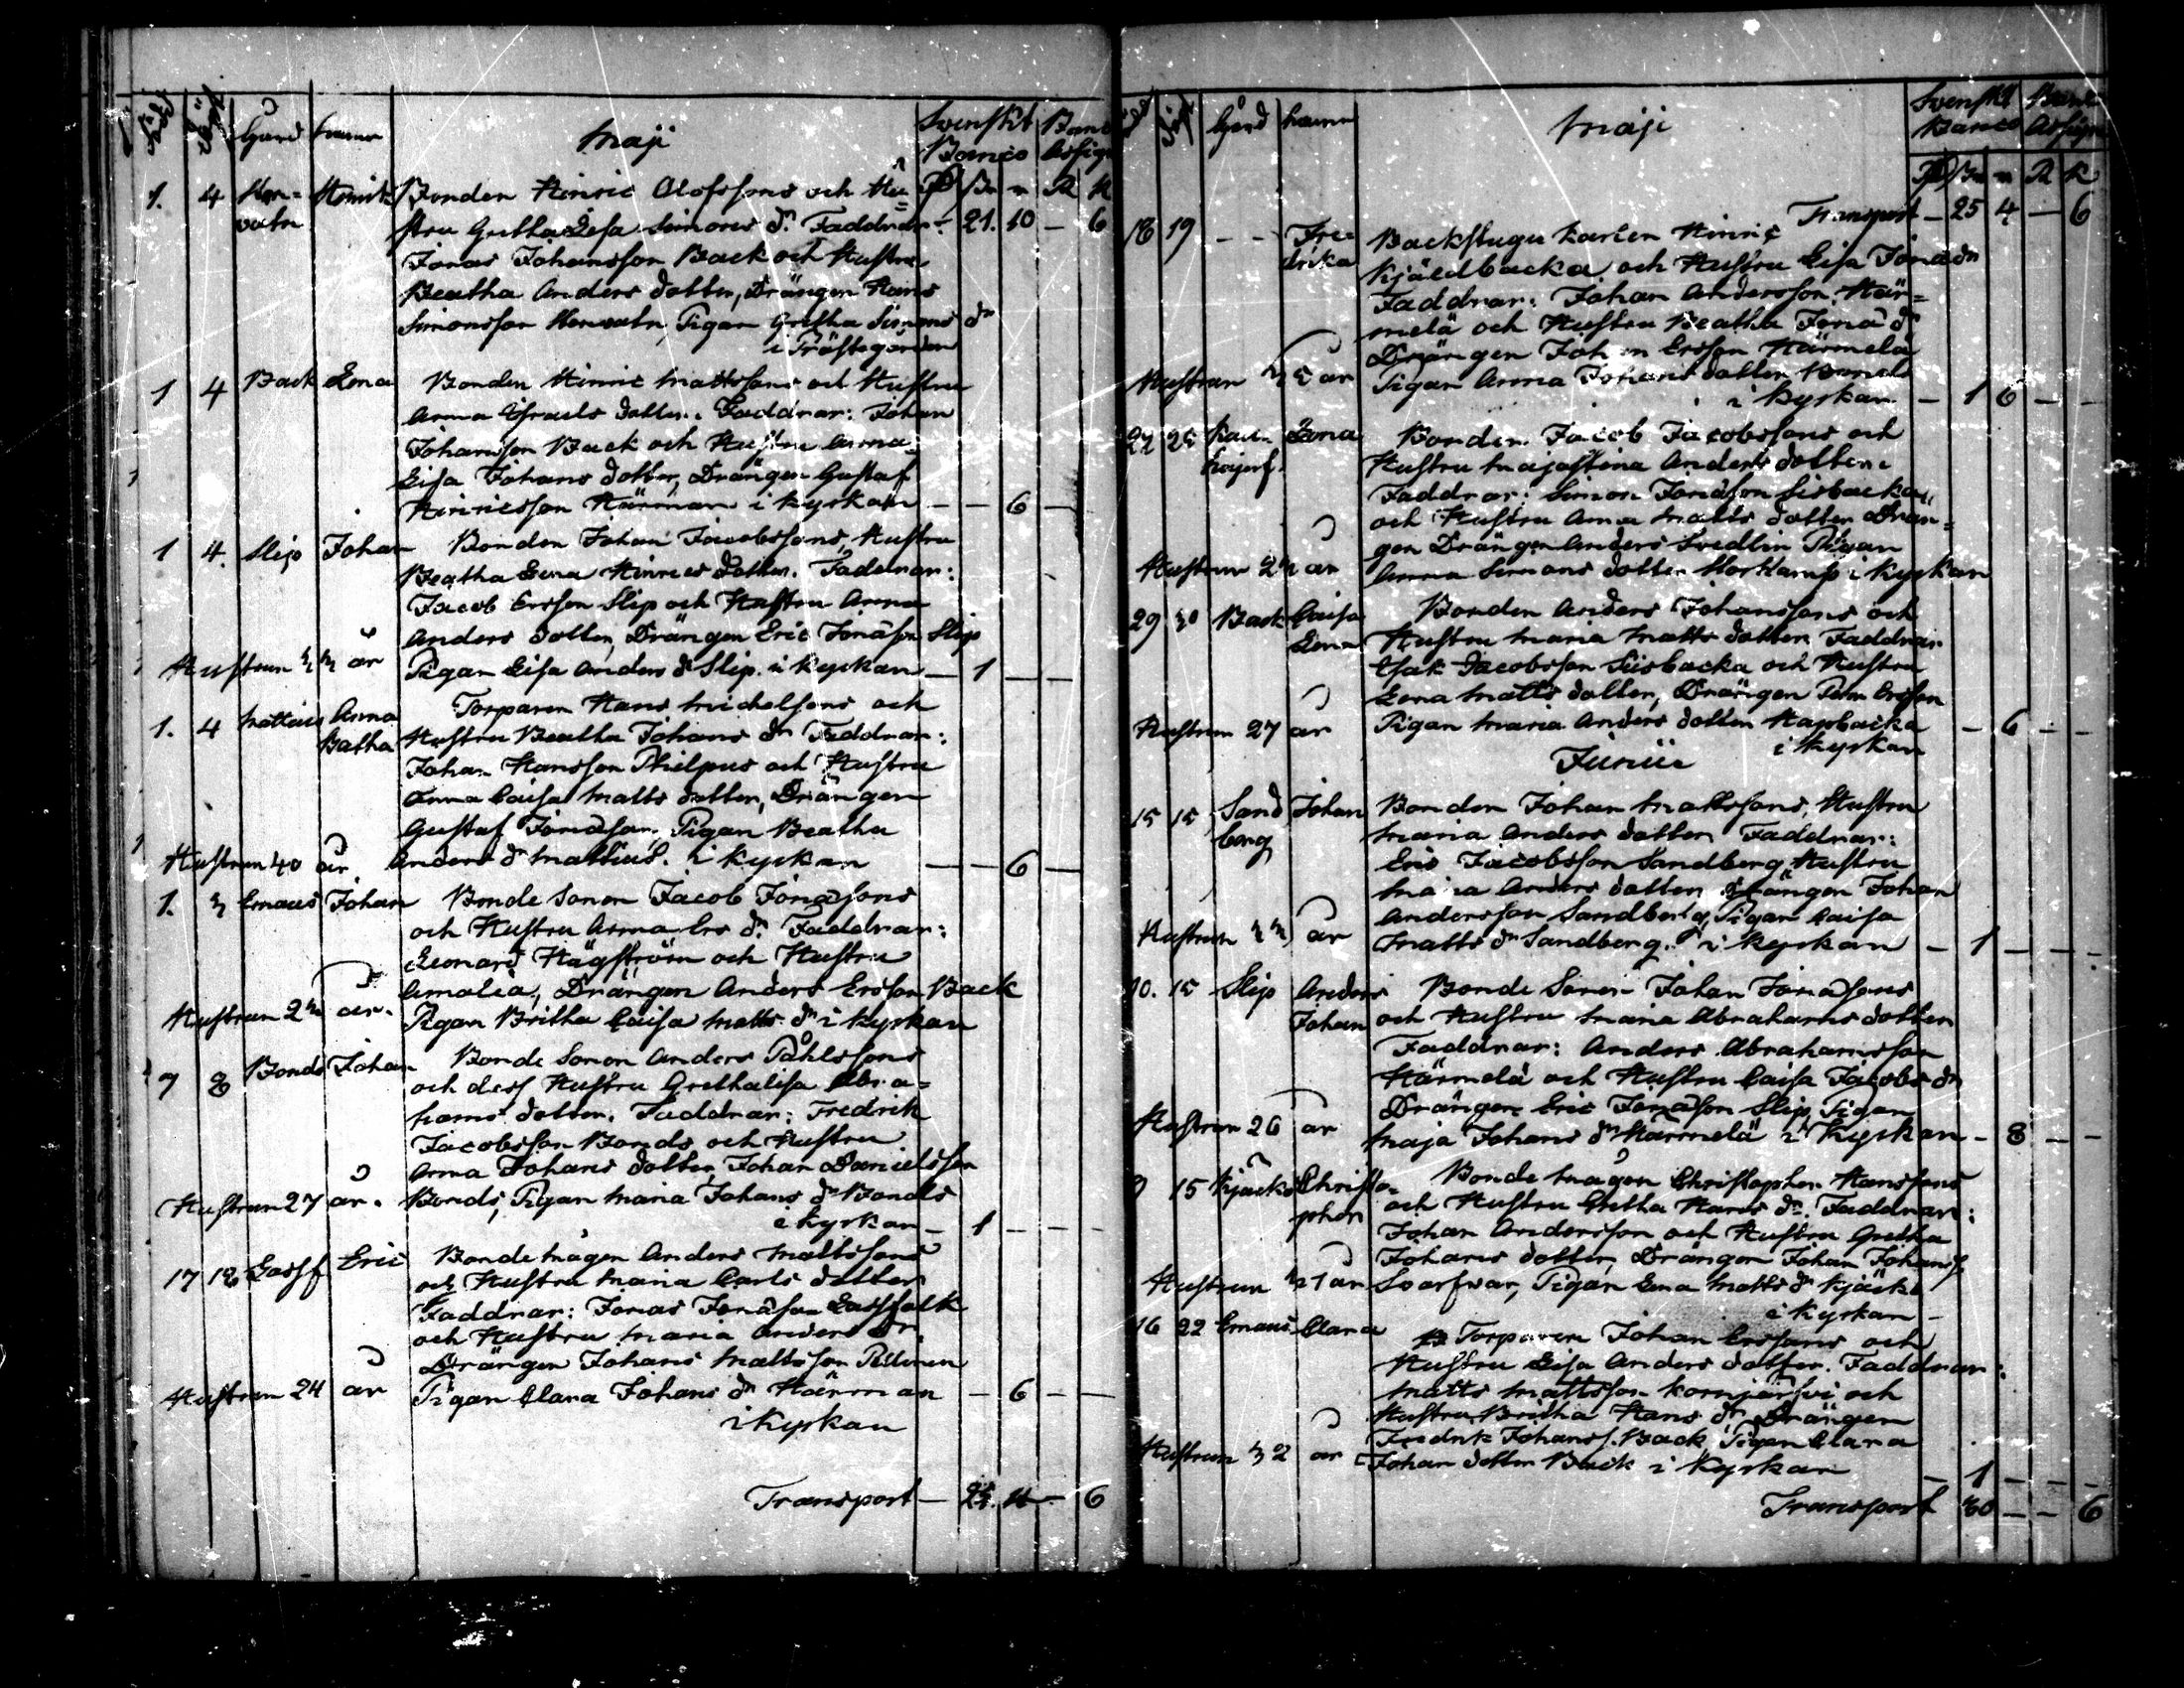 Född Döpt Gård Namn Maji Svenskt Banco Banco Assign
1. 4 Hen= Henrik Bonden Hinric Olofssons och Hu= Rd Sk r R K
vatn stru Gretha Lisa Simons dr. Faddrar: - 21. 10 - 6
Jonas Johansson Back och Hustru
Beatha Anders dotter, Drängen Hans
Simonsson Henvatn, Pigan Gretha Simons dr
i Prästegården
1 4 Back Lena Bonden Hinric Mattssons och Hustru
Anna Israels dotter. Faddrar: Johan
Johansson Back och Hustru Anna
Lisa Johans dotter, Drängen Gustaf
Hinricsson Härman i kyrkan - - 6 -
1 4. Slip Johan Bonden Johan Jacobssons, Hustru
Beatha Lena Hinrics dotter. Faddrar:
Jacob Ersson Slip och Hustru Anna
Anders dotter, Drängen Eric Jonasson Slip
Hustrun 33 år Pigan Lisa Anders dr Slip. i kyrkan - 1 - -
1. 4 Mattius Anna Torparen Hans Michelsons och
Batha Hustru Beatha Johans dr Faddrar:
Johan Hansson Philpus och Hustru
Anna Caisa Matts dotter, Drängen
Gustaf Jonasson, Pigan Beatha
Hustrun 40 år. Anders dr Mattius. i kyrkan - - 6 -
1. 3 Emaus Johan Bonde Sonen Jacob Jonasons
och Hustru Anna Ers dr. Faddrar:
Leonard Hägström och Hustru
Amalia, Drängen Anders Ersson Back
Hustrun 23 år. Pigan Britha Caisa Matts dr i kyrkan
7 8 Bonds Johan Bonde Sonen Anders Påhlssons
och dess Hustru Grethalisa Abra=
hams dotter. Faddrar: Fredrik
Jacobsson Bonds och Hustru
Anna Johans dotter, Johan Danielsson
Hustrun 27 år. Bonds, Pigan Maria Johans dr Bonds
i kyrkan - 1 - - -
17 18 Gassf Eric Bonde Mågen Anders Mattssons
och Hustru Maria Carls dotter
Faddrar: Jonas Jonasson Gassfolk
och Hustru Maria Anders dr.
Drängen Johans Mattsson Pellinen
Hustrun 24 år Pigan Clara Johans dr Härman - 6 - -
i kyrkan
Transport - 25. 4 - 6
Född Döpt Gård Namn Maji Svenskt Banco Banco Assign
Rd Sk r R K
Transport - 25 4 - 6
18 19 - - Fre= Backstugu karlen Hinric
drika Kjäldbacka och Hustru Lisa Jonas dr
Faddrar: Johan Andersson Här=
melä och Hustru Beatha Jonas dr
Drängen Johan Ersson Härmelä
Hustrun 35 år Pigan Anna Johans dotter Bonds
i kyrkan - 1 6 - -
22 25 Lena Bonden Jacob Jacobssons och
Hustru Majastina Anders dotter.
Faddrar: Simon Jonasson Sisbacka
och Hustru Anna Matts dotter Drän=
gen Drängen Anders Svedlin Pigan
Hustrun 23 år Anna Simons dotter i kyrkan
29 30 Back Caisa Bonden Anders Johanssons och
Lena Hustru Maria Matts dotter Faddrar
Isak Jacobsson Sisbacka och Hustru
Lena Matts dotter, Drängen Ersson
Hustrun 27 år Pigan Maria Anders dotter Hagsbacka - 6 - -
i kyrkan
Junii
15 15 Sand Johan Bonden Johan Mattssons, Hustru
berg Maria Anders dotter Faddrar:
Eric Jacobsson Sandberg Hustru
Maria Anders dotter, Drängen Johan
Andersson Sandberg, Pigan Caisa
Hustrun 33 år Matts dr Sandberg. i kyrkan - 1 - - -
10. 15 Slip Anders Bonde Sonen Johan Jonasons
Johan och Hustru Maria Abrahams dotter
Faddrar: Anders Abrahamsson
Härmelä och Hustru Caisa Jacobs dr
Drängen Eric Jonasson Slip, Pigan
Hustrun 26 år Maja Johans dr Härmelä i Kyrkan - 8 - -
9 15 Kjäcko Christo= Bonde Mågen Christopher Hanssons
pher och Hustru Gretha Hans dr. Faddrar:
Johan Andersson och Hustru Gretha
Johans dotter, Drängen Johan Johans
Hustrun 31 år Svarfvar, Pigan Lena Matts dr Kjäcko
i kyrkan -
16 22 Emaus Clara Torparen Johan Erssons och
Hustru Lisa Anders dotter. Faddrar:
Matts Mattsson Kornjärfvi och
Hustru Britha Hans dr, Drängen
Fredrik Johanss. Back, Pigan Clara
Hustrun 32 år Johan dotter Back i Kyrkan - 1 - - -
Transport 30 - - 6